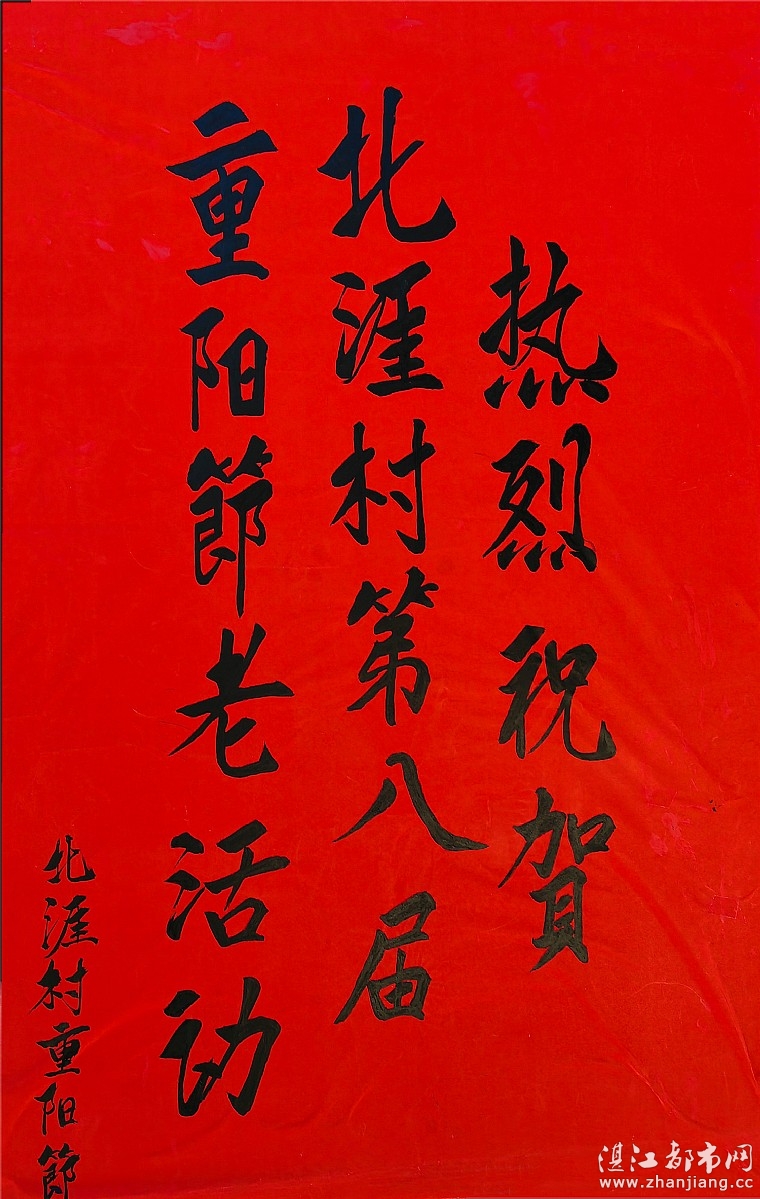 热烈祝贺
北涯村第八届
重阳節老活动
北涯村重阳節
湛江都市网
www.zhanjiang.cc